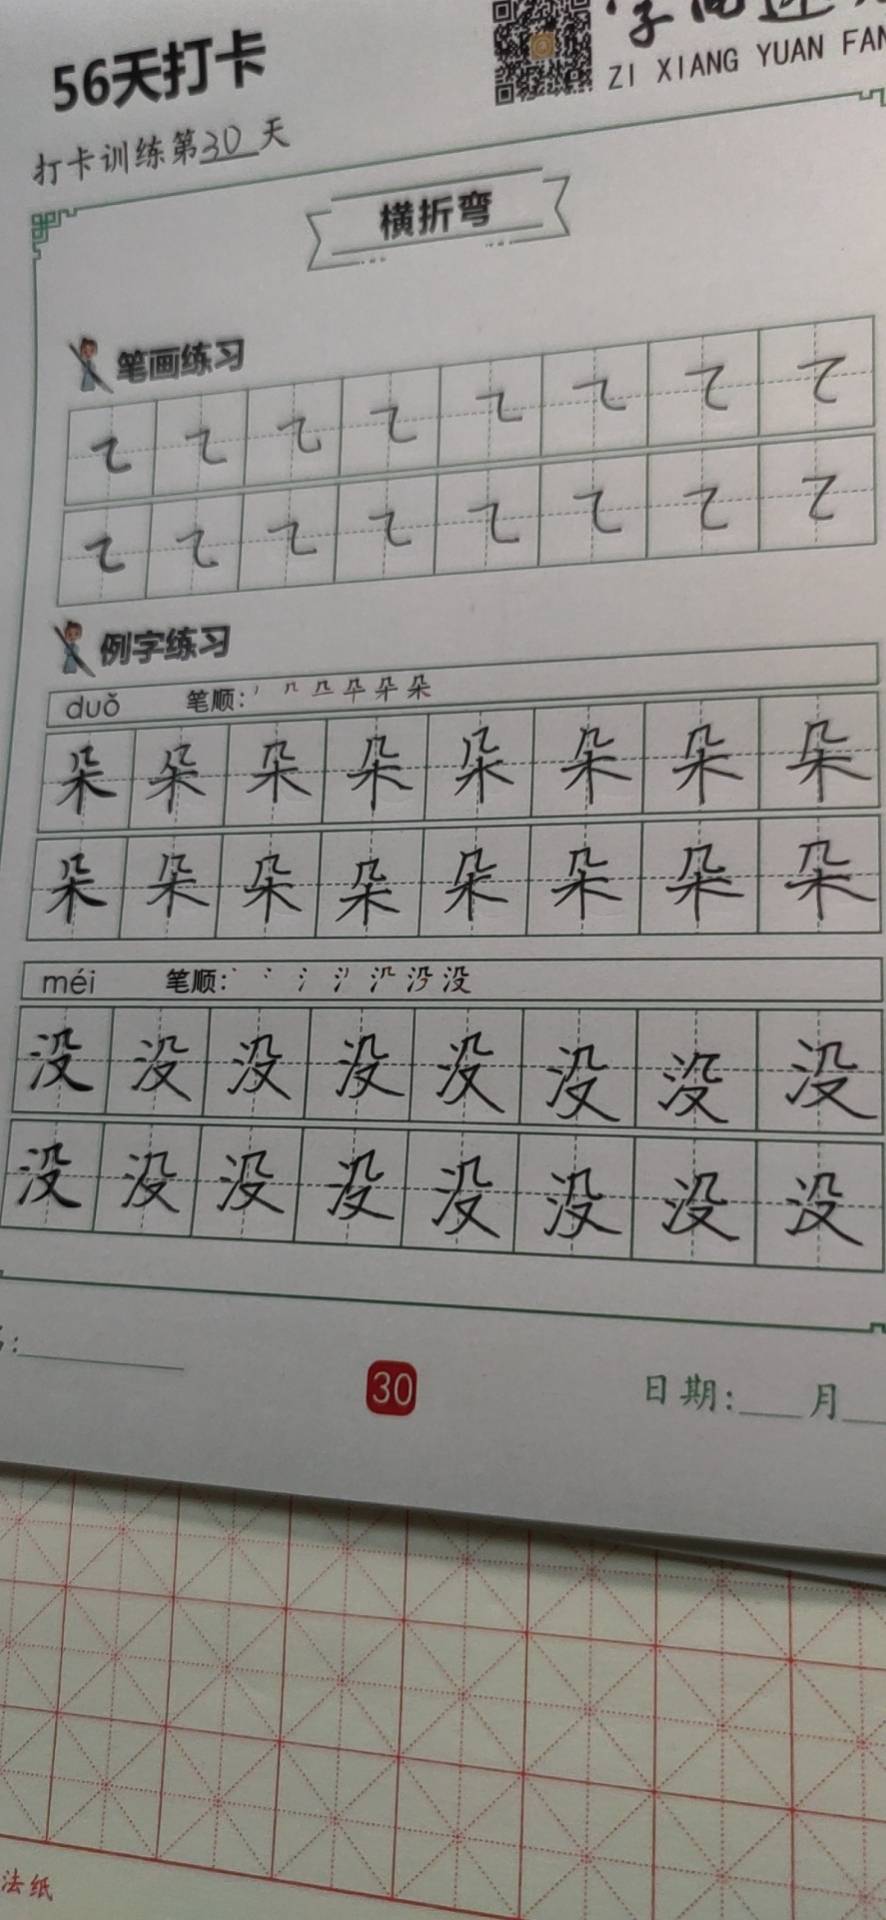 56天打卡
ZI XIANG YUAN FAN
打卡训练第30天
横折弯
笔画练习
㇍ ㇍ ㇍ ㇍ ㇍ ㇍ ㇍ ㇍
㇍ ㇍ ㇍ ㇍ ㇍ ㇍ ㇍ ㇍
例字练习
duǒ 笔顺: 朵
朵 朵 朵 朵 朵 朵 朵 朵
朵 朵 朵 朵 朵 朵 朵 朵
méi 笔顺: 没
没 没 没 没 没 没 没 没
没 没 没 没 没 没 没 没
30
日期:___月
法纸